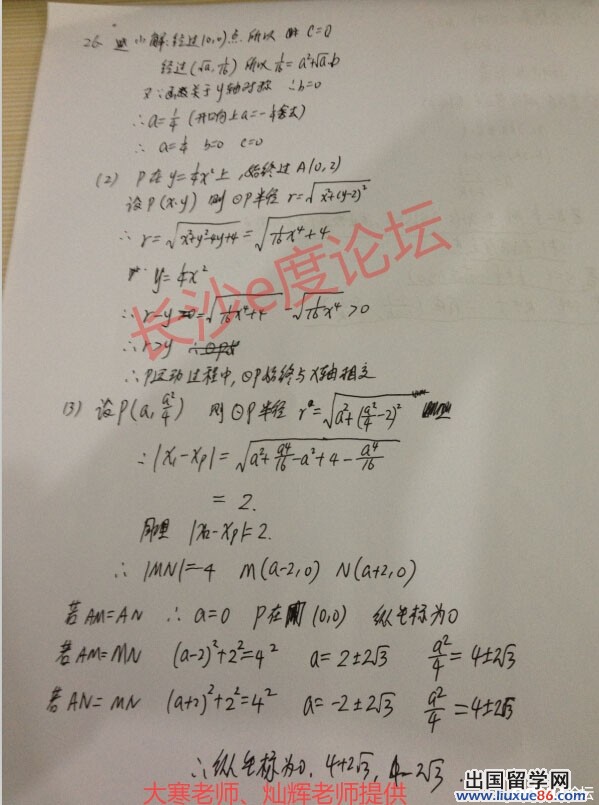 26. 解:经过(0,0)点 所以 c=0
经过(√a, 1/16) 所以 1/16=a²+√a·b
又∵函数关于y轴对称 ∴b=0
∴a=1/4 (开口向上 a=-1/4舍去)
∴ a=1/4 b=0 c=0
(2) P在y=1/4x²上,始终过A(0,2)
设P(x,y) 则⊙P半径 r=√(x²+(y-2)²)
∴ r=√(x²+y²-4y+4)=√(1/16x⁴+4)
y=1/4x²
∴r-y=√(1/16x⁴+4) -√(1/16x⁴)>0
∴r>y
∴P运动过程中,⊙P始终与X轴相交
(3) 设P(a, a²/4) 则⊙P半径 r=√(a²+(a²/4-2)²)
∴|x₁-xp|=√(a²+a⁴/16-a²+4-a⁴/16)
=2.
同理 |x₂-xp|=2.
∴ |MN|=4 M(a-2,0) N(a+2,0)
若AM=AN ∴a=0 P在(0,0) 纵坐标为0
若AM=MN (a-2)²+2²=4² a=2±2√3 a²/4=4±2√3
若AN=MN (a+2)²+2²=4² a=-2±2√3 a²/4=4±2√3
∴纵坐标为0, 4+2√3, 4-2√3.
长沙e度论坛
大寒老师、灿辉老师提供
出国留学网
www.liuxue86.com